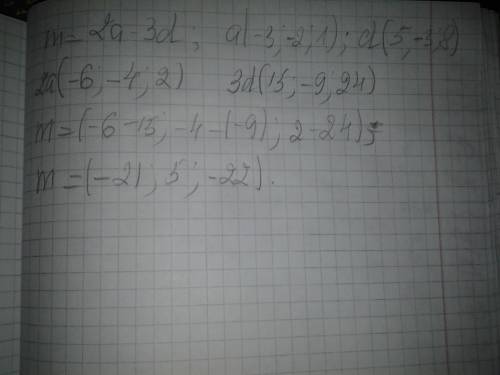 m = 2a - 3d ; a(-3; -2; 1) ; d(5; -3; 8)
2a(-6; -4; 2) 3d(15; -9; 24)
m = (-6 - 15; -4 - (-9); 2 - 24) ;
m = (-21; 5; -22).